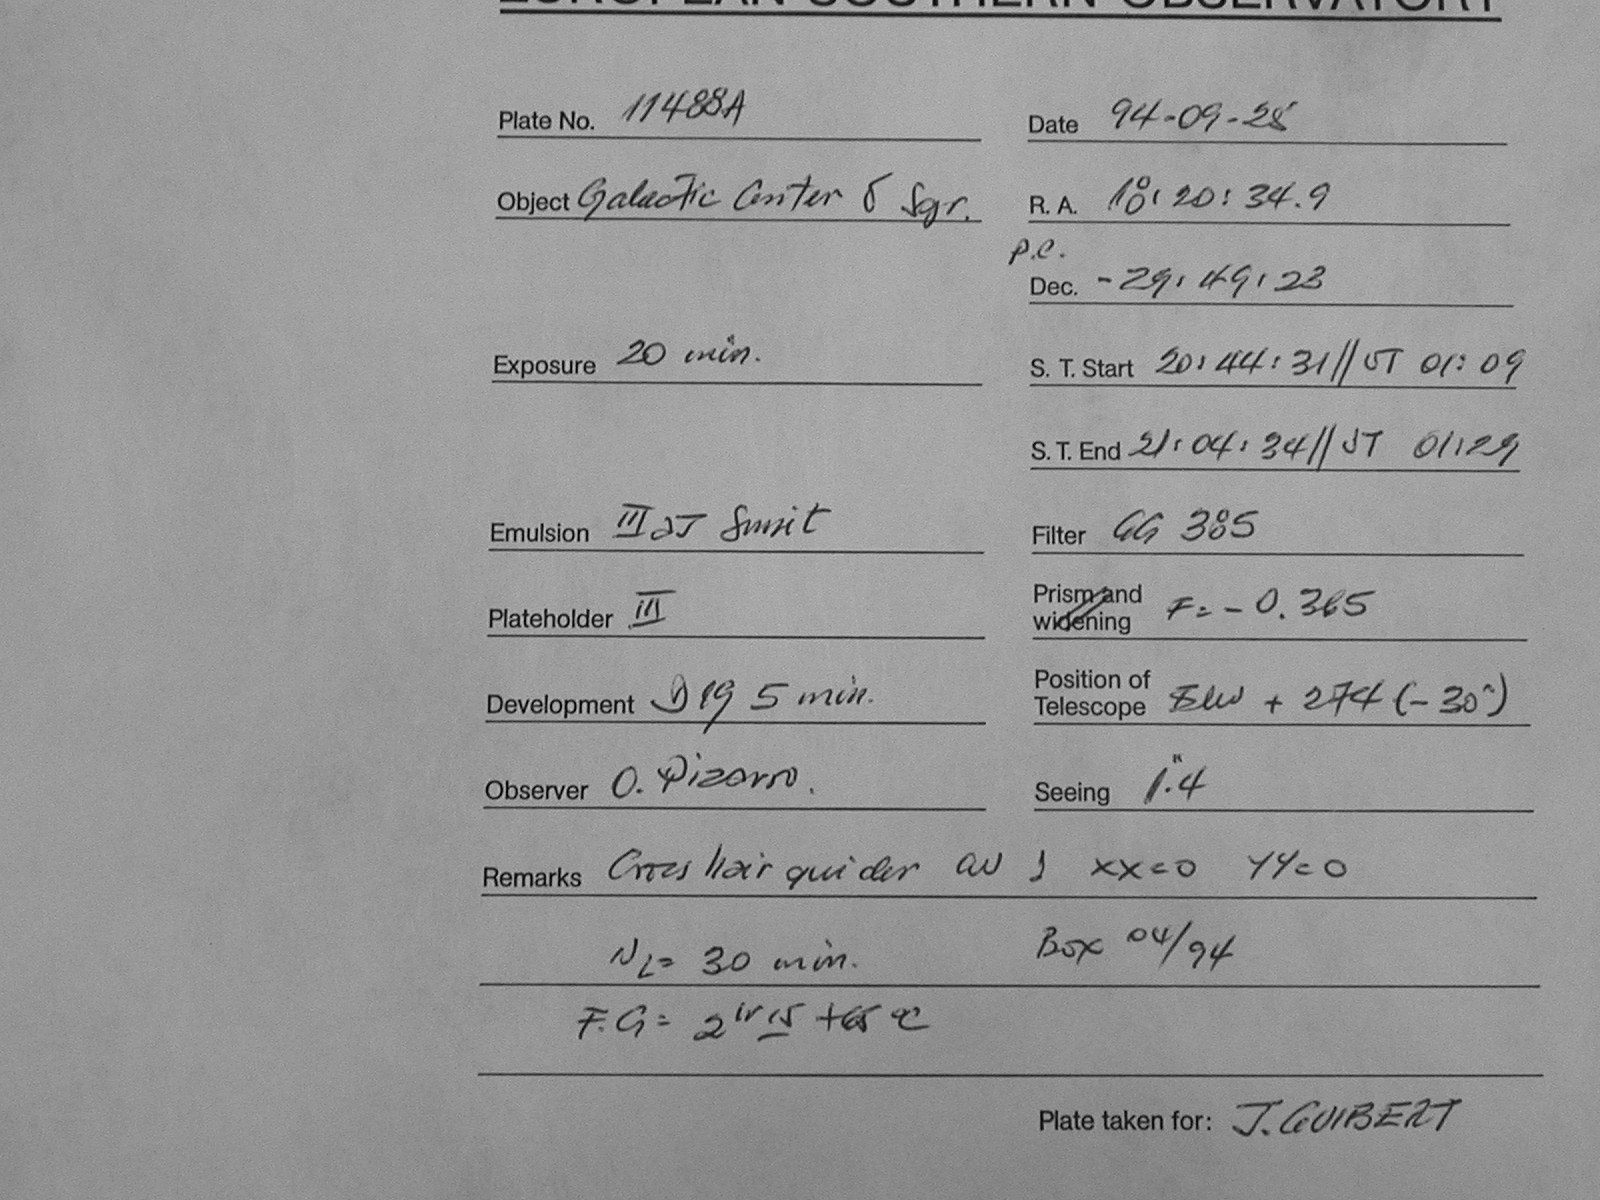 EUROPEAN SOUTHERN OBSERVATORY
Plate No. 11488A Date 94-09-28
Object Galactic Center δ Sgr. R. A. 18: 20: 34.9
P.C.
Dec. -29: 49: 23
Exposure 20 min. S. T. Start 20: 44: 31// UT 01: 09
S. T. End 21: 04: 34// UT 01:29
Emulsion III aJ Filter GG 385
Plateholder III Prism and widening F= -0.365
Development D19 5 min. Position of Telescope + 274 (-30")
Observer O. Pizarro. Seeing 1".4
Remarks Cross hair guider xx=0 YY=0
N2= 30 min. Box 04/94
F.G= 2 hr 15 +65 °C
Plate taken for: J. GUIBERT